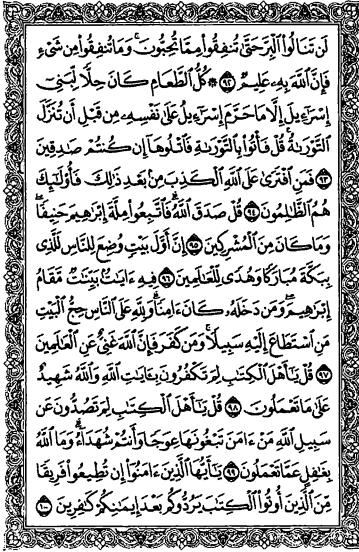 لَن تَنَالُوا۟ ٱلْبِرَّ حَتَّىٰ تُنفِقُوا۟ مِمَّا تُحِبُّونَ ۚ وَمَا تُنفِقُوا۟ مِن شَىْءٍ
فَإِنَّ ٱللَّهَ بِهِۦ عَلِيمٌ ٩٢ ۞ كُلُّ ٱلطَّعَامِ كَانَ حِلًّا لِّبَنِىٓ
إِسْرَٰٓءِيلَ إِلَّا مَا حَرَّمَ إِسْرَٰٓءِيلُ عَلَىٰ نَفْسِهِۦ مِن قَبْلِ أَن تُنَزَّلَ
ٱلتَّوْرَىٰةُ ۗ قُلْ فَأْتُوا۟ بِٱلتَّوْرَىٰةِ فَٱتْلُوهَآ إِن كُنتُمْ صَٰدِقِينَ
٩٣ فَمَنِ ٱفْتَرَىٰ عَلَى ٱللَّهِ ٱلْكَذِبَ مِنۢ بَعْدِ ذَٰلِكَ فَأُو۟لَٰٓئِكَ
هُمُ ٱلظَّٰلِمُونَ ٩٤ قُلْ صَدَقَ ٱللَّهُ ۗ فَٱتَّبِعُوا۟ مِلَّةَ إِبْرَٰهِيمَ حَنِيفًا
وَمَا كَانَ مِنَ ٱلْمُشْرِكِينَ ٩٥ إِنَّ أَوَّلَ بَيْتٍ وُضِعَ لِلنَّاسِ لَلَّذِى
بِبَكَّةَ مُبَارَكًا وَهُدًى لِّلْعَٰلَمِينَ ٩٦ فِيهِ ءَايَٰتٌۢ بَيِّنَٰتٌ مَّقَامُ
إِبْرَٰهِيمَ ۖ وَمَن دَخَلَهُۥ كَانَ ءَامِنًا ۗ وَلِلَّهِ عَلَى ٱلنَّاسِ حِجُّ ٱلْبَيْتِ
مَنِ ٱسْتَطَاعَ إِلَيْهِ سَبِيلًا ۚ وَمَن كَفَرَ فَإِنَّ ٱللَّهَ غَنِىٌّ عَنِ ٱلْعَٰلَمِينَ
٩٧ قُلْ يَٰٓأَهْلَ ٱلْكِتَٰبِ لِمَ تَكْفُرُونَ بِـَٔايَٰتِ ٱللَّهِ وَٱللَّهُ شَهِيدٌ
عَلَىٰ مَا تَعْمَلُونَ ٩٨ قُلْ يَٰٓأَهْلَ ٱلْكِتَٰبِ لِمَ تَصُدُّونَ عَن
سَبِيلِ ٱللَّهِ مَنْ ءَامَنَ تَبْغُونَهَا عِوَجًا وَأَنتُمْ شُهَدَآءُ ۗ وَمَا ٱللَّهُ
بِغَٰفِلٍ عَمَّا تَعْمَلُونَ ٩٩ يَٰٓأَيُّهَا ٱلَّذِينَ ءَامَنُوٓا۟ إِن تُطِيعُوا۟ فَرِيقًا
مِّنَ ٱلَّذِينَ أُوتُوا۟ ٱلْكِتَٰبَ يَرُدُّوكُم بَعْدَ إِيمَٰنِكُمْ كَٰفِرِينَ ١٠٠